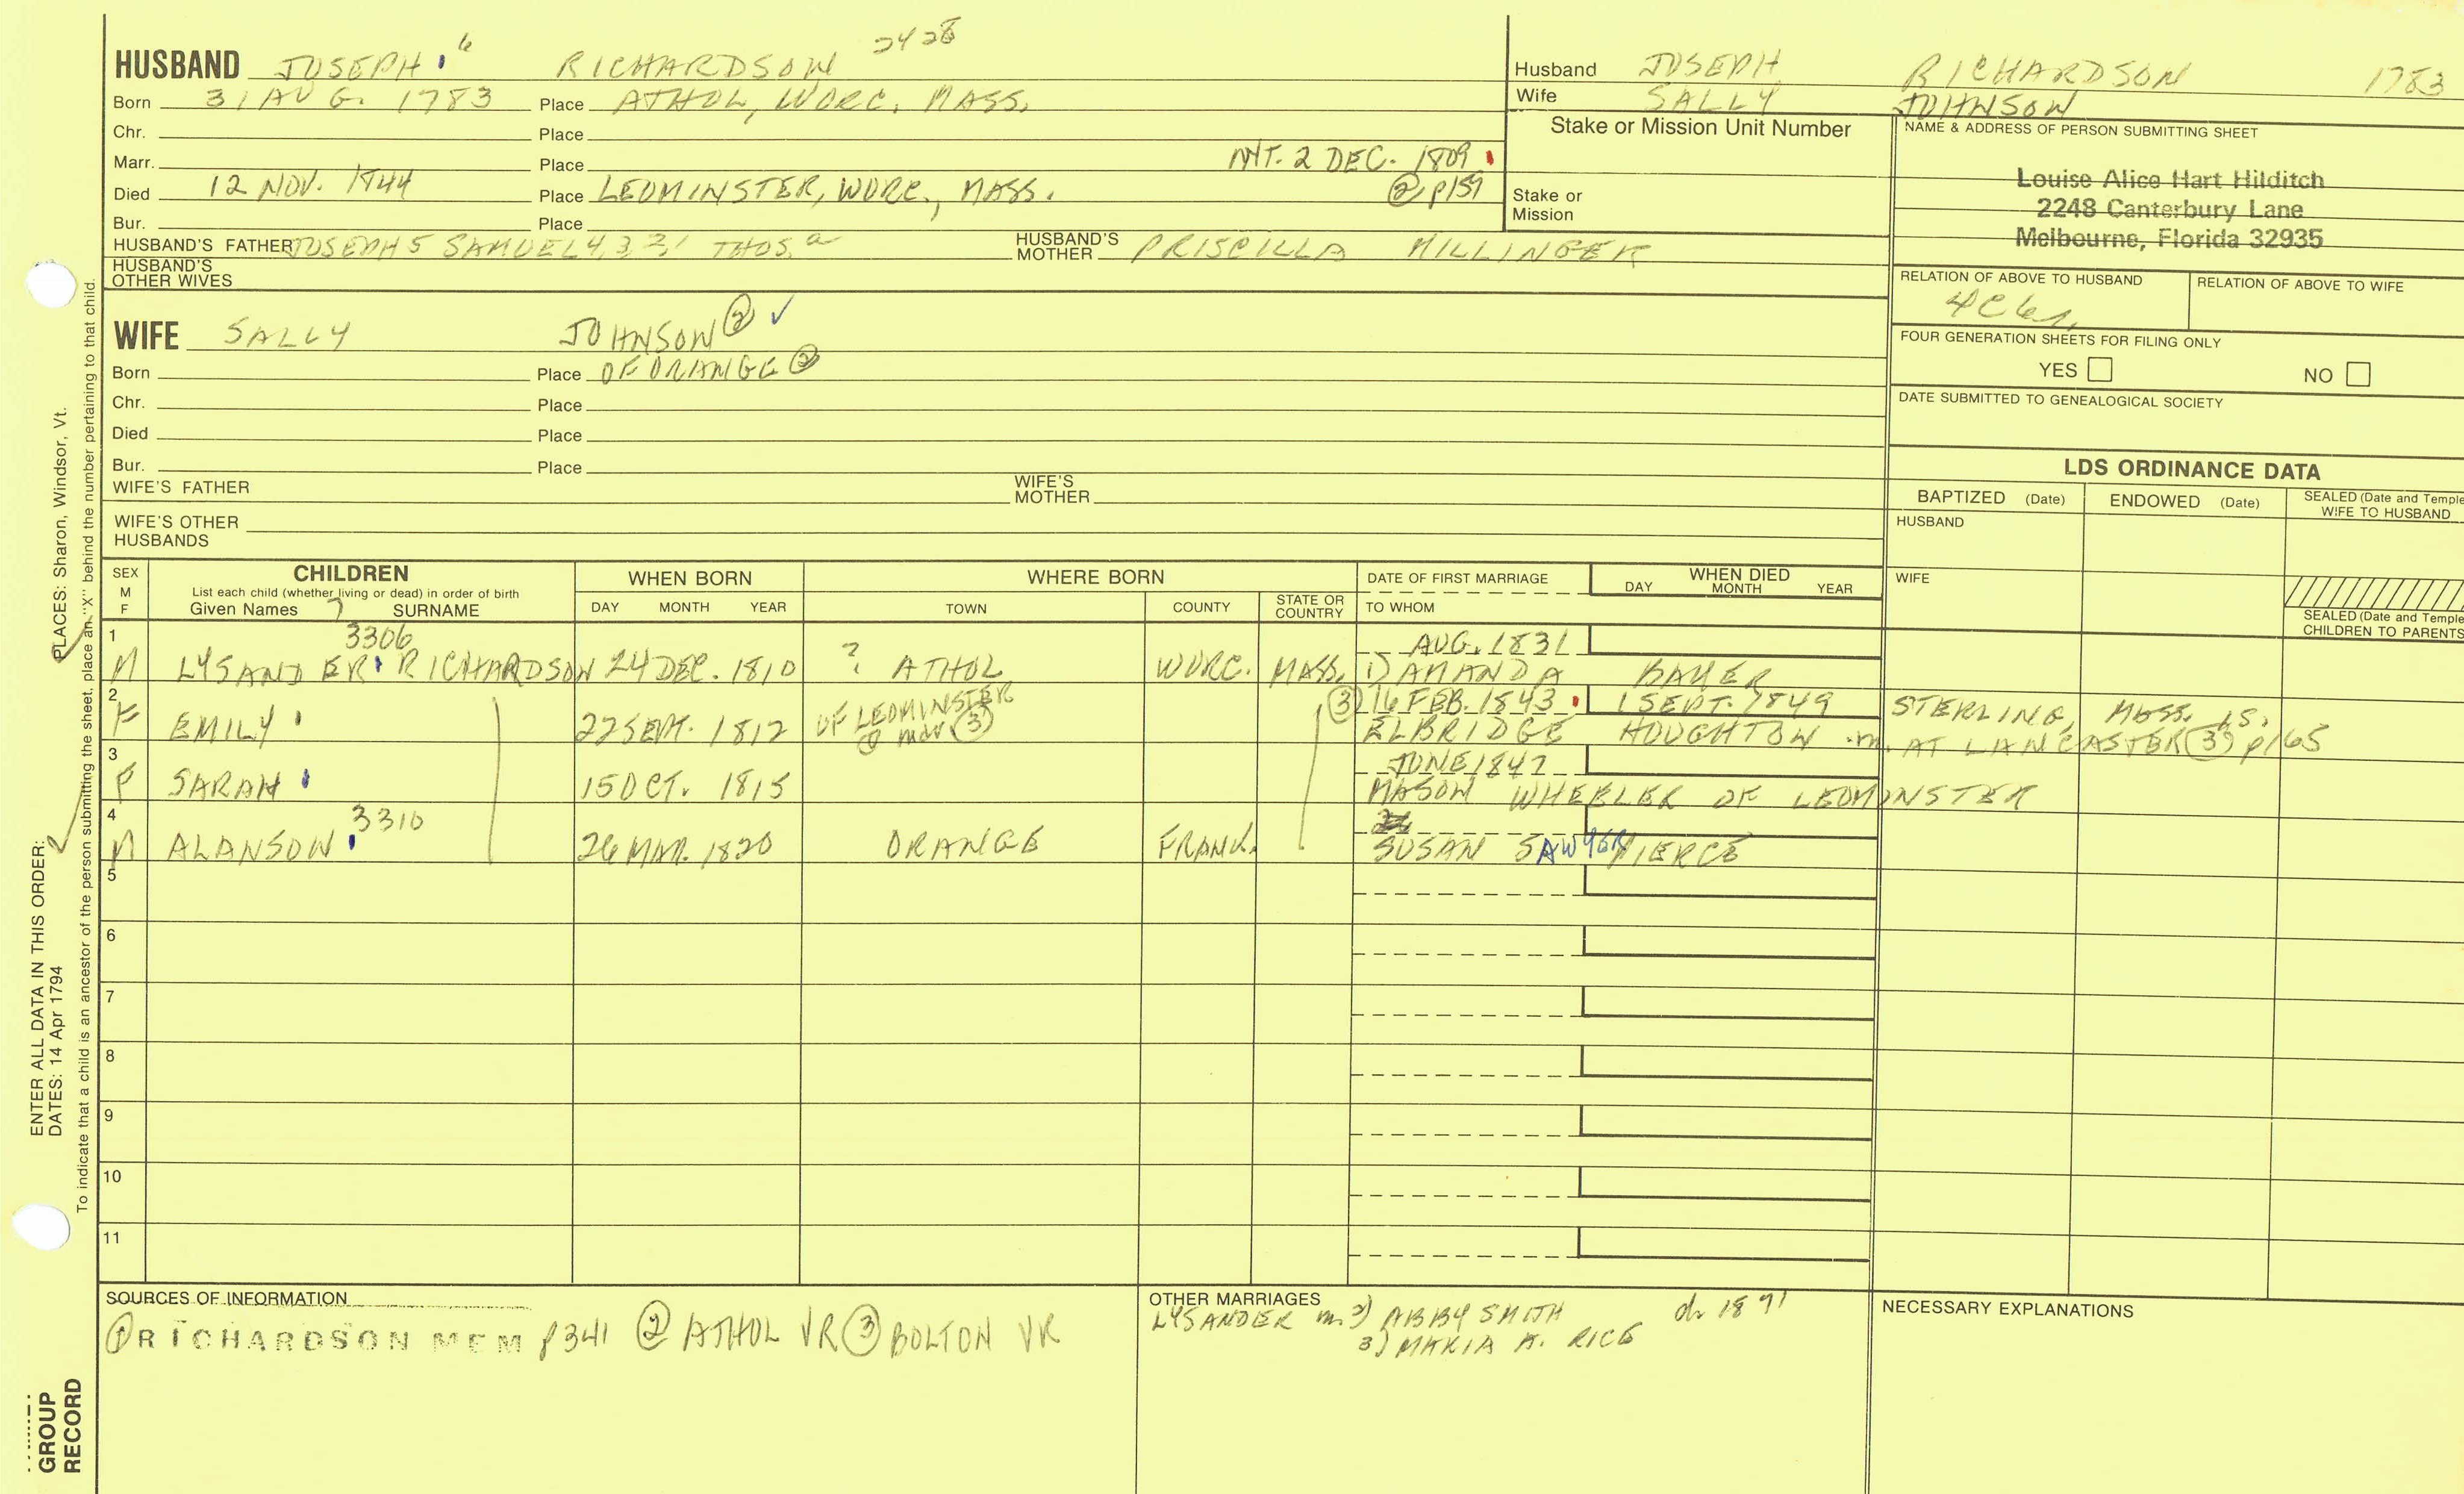 HUSBAND JOSEPH 6 RICHARDSON 2428
Born 31 AUG. 1783 Place ATHOL, WORC. MASS.
Chr. Place
Marr. Place INT. 2 DEC. 1809
Died 12 NOV. 1844 Place LEOMINSTER, WORC., MASS. ② p159
Bur. Place
HUSBAND'S FATHER JOSEPH 5 SAMUEL 4, 3, 2, 1 THOS. a HUSBAND'S MOTHER PRISCILLA
HUSBAND'S OTHER WIVES
Husband JOSEPH RICHARDSON 1783
Wife SALLY JOHNSON
Stake or Mission Unit Number
Stake or Mission
NAME & ADDRESS OF PERSON SUBMITTING SHEET
Louise Alice Hart Hilditch
2248 Canterbury Lane
Melbourne, Florida 32935
RELATION OF ABOVE TO HUSBAND RELATION OF ABOVE TO WIFE
4C6r
FOUR GENERATION SHEETS FOR FILING ONLY
YES NO
DATE SUBMITTED TO GENEALOGICAL SOCIETY
WIFE SALLY JOHNSON ② ✓
Born Place OF ORANGE ②
Chr. Place
Died Place
Bur. Place
WIFE'S FATHER WIFE'S MOTHER
WIFE'S OTHER HUSBANDS
LDS ORDINANCE DATA
BAPTIZED (Date) ENDOWED (Date) SEALED (Date and Temple) WIFE TO HUSBAND
HUSBAND
WIFE
SEALED (Date and Temple) CHILDREN TO PARENTS
SEX M F CHILDREN WHEN BORN WHERE BORN DATE OF FIRST MARRIAGE WHEN DIED
List each child (whether living or dead) in order of birth
Given Names 7 SURNAME DAY MONTH YEAR TOWN COUNTY STATE OR COUNTRY TO WHOM DAY MONTH YEAR
1 3306 AUG. 1831
M LYSANDER RICHARDSON 24 DEC. 1810 ? ATHOL WORC. MASS. 1) AMANDA BAKER
2 OF LEOMINSTER ③ 16 FEB. 1843 1 SEPT. 1849 STERLING, MASS.
F EMILY 22 SEPT. 1812 @ mar ③ ELBRIDGE HOUGHTON m. AT LANCASTER ③ p165
3 JUNE 1847
F SARAH 15 OCT. 1815 MASON WHEELER OF LEOMINSTER
4 3310
M ALANSON 26 MAR. 1820 ORANGE FRANK. SUSAN SAWYER PIERCE
5
6
7
8
9
10
11
SOURCES OF INFORMATION
① RICHARDSON MEM p341 ② ATHOL VR ③ BOLTON VR
OTHER MARRIAGES
LYSANDER m. 2) ABBY SMITH d. 1891
3) MARIA A. RICE
NECESSARY EXPLANATIONS
ENTER ALL DATA IN THIS ORDER:
DATES: 14 Apr 1794 PLACES: Sharon, Windsor, Vt.
To indicate that a child is an ancestor of the person submitting the sheet, place an "X" behind the number pertaining to that child.
GROUP
RECORD